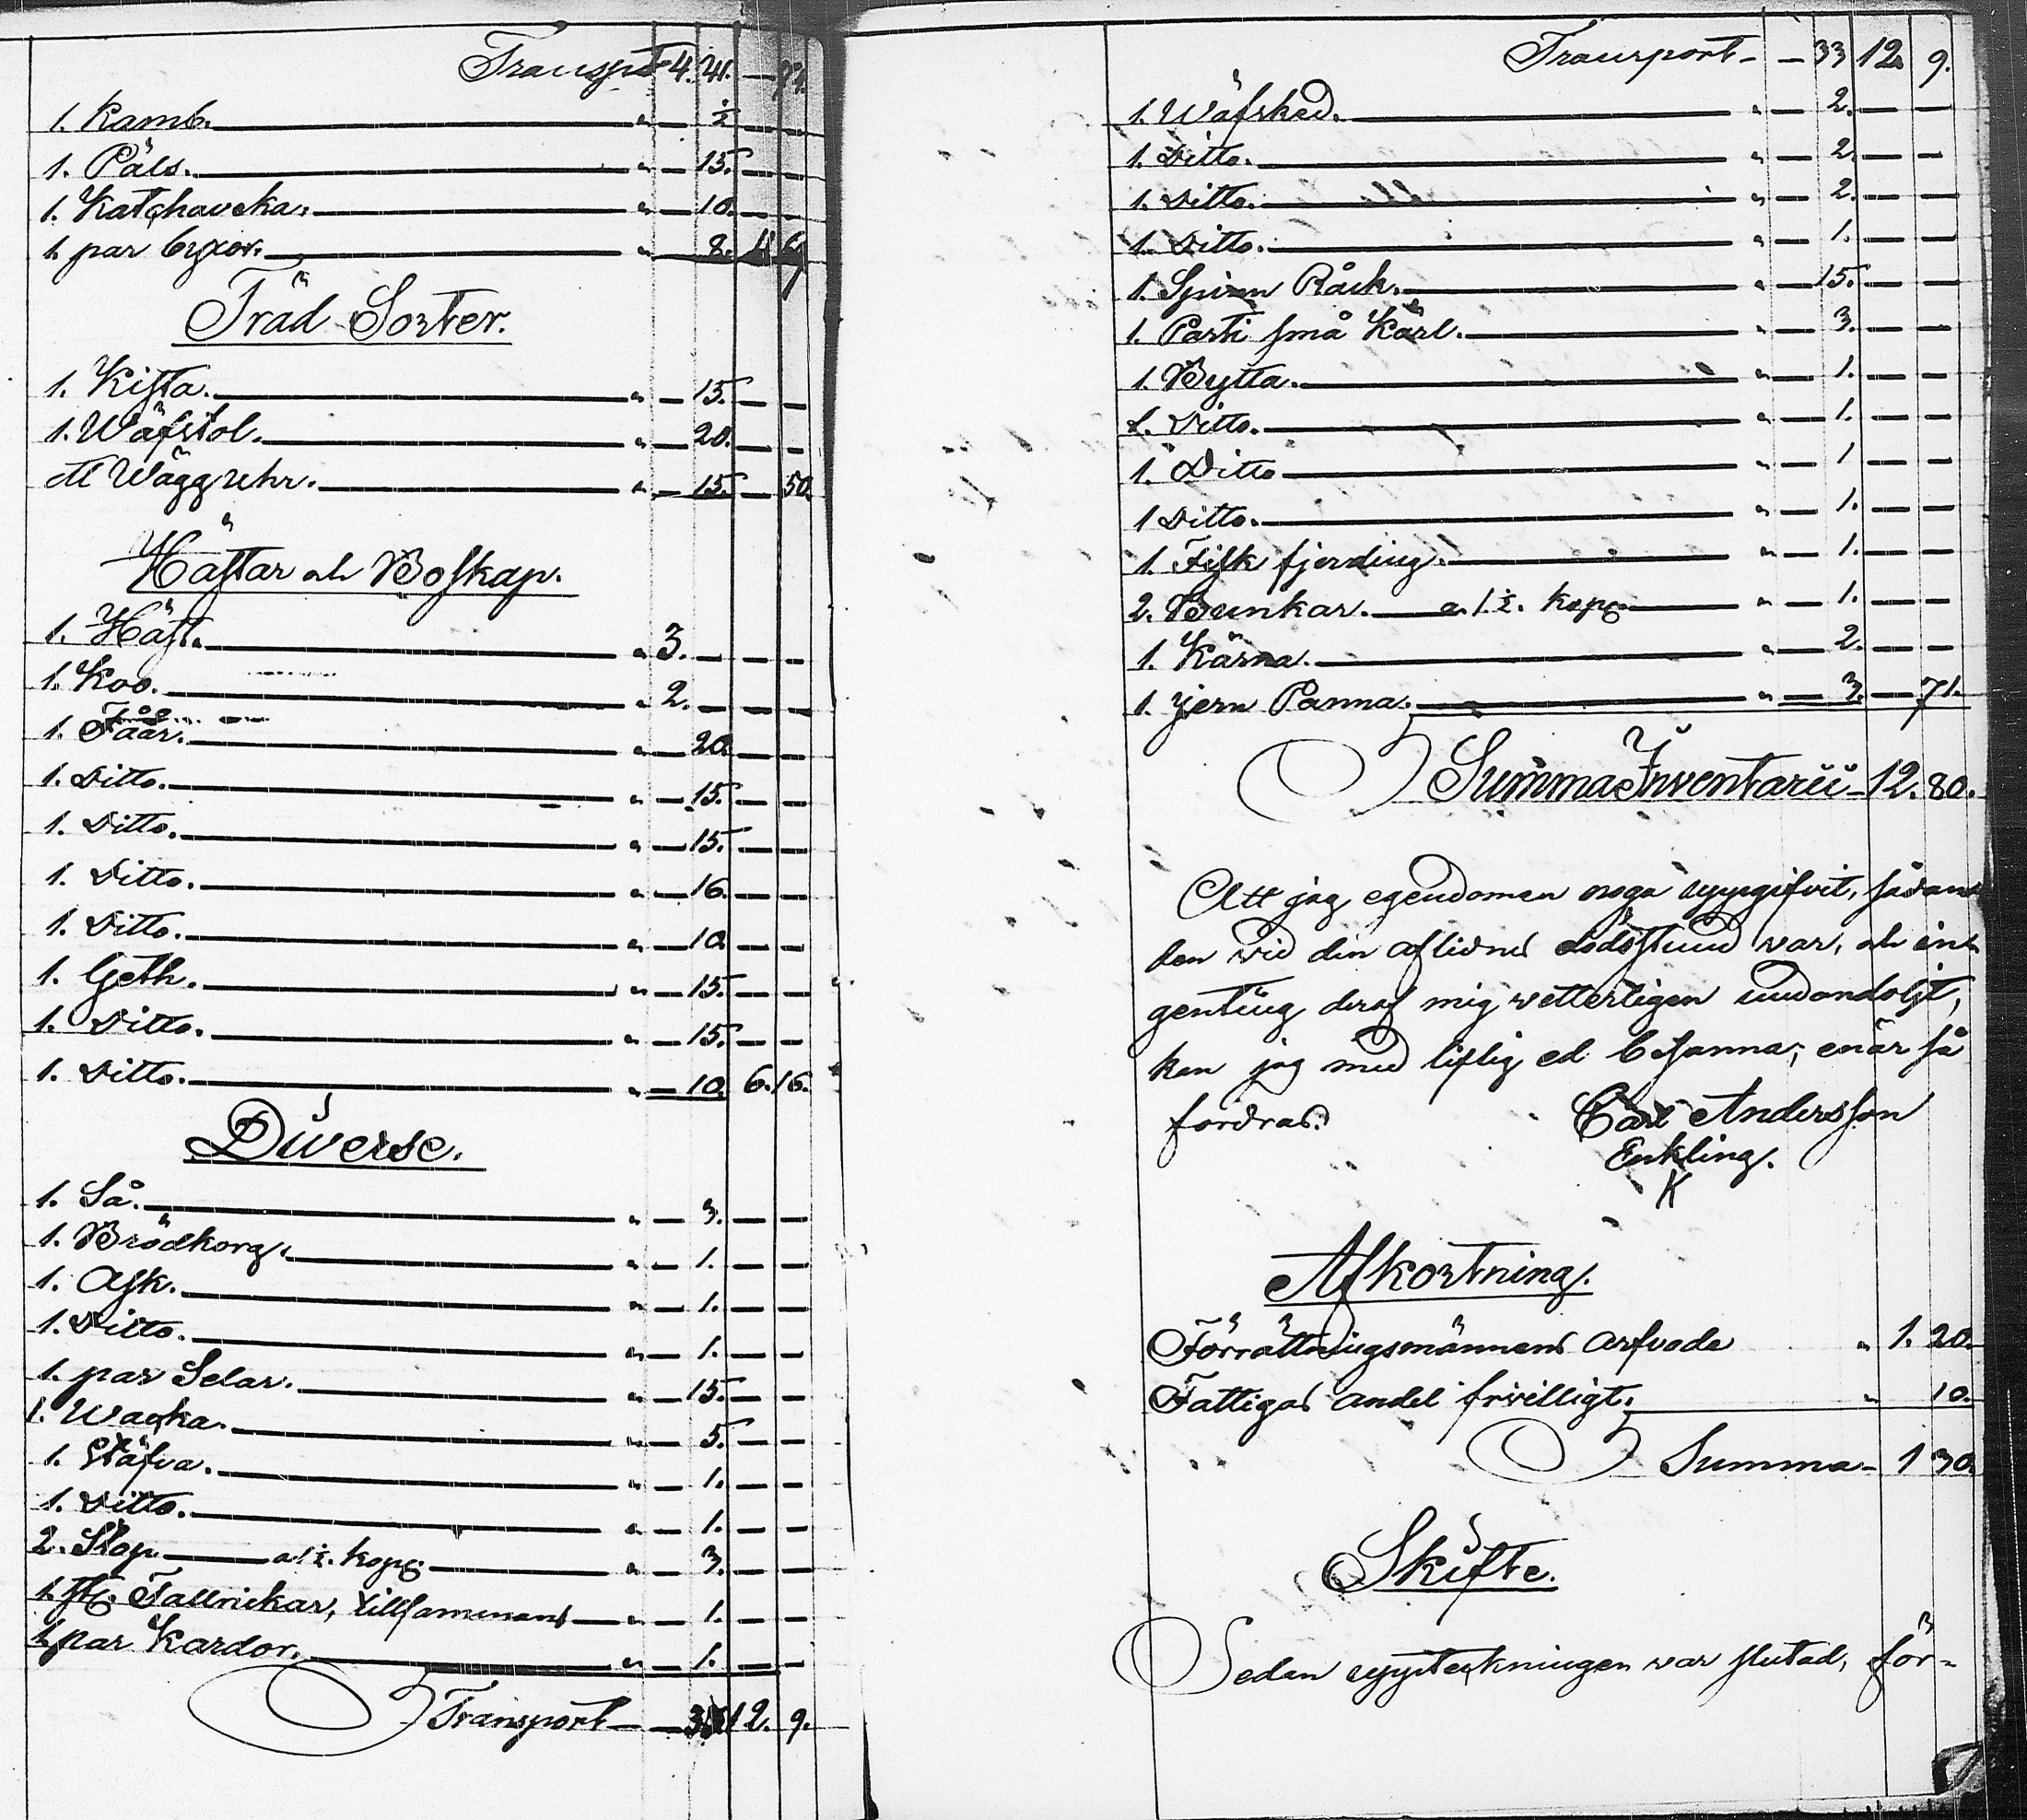 Transport 4. 41. —
1. Kamb. " — ½ — —
1. Päls. " — 15. — —
1. Katchavcka. " — 10. — —
1. par byxor. " — 8.
Träd Sorter.
1. Kista. " — 15. — —
1. Wäfstol. " — 20. — —
ett Wägguhr. " — 15. — 50.
Hästar och Boskap.
1. Häst. " 3. — — —
1. Koo. " 2. — — —
1. Fåår. " — 20. — —
1. Ditto. " — 15. — —
1. Ditto. " — 15. — —
1. Ditto. " — 16. — —
1. Ditto. " — 10. — —
1. Geth. " — 15. — —
1. Ditto. " — 15. — —
1. Ditto. " — 10. 6. 16.
Diverse.
1. Så. " — 3. — —
1. Brödkorg. " — 1. — —
1. Ask. " — 1. — —
1. Ditto. " — 1. — —
1. par Selar. " — 15. — —
1. Wagka. " — 5. — —
1. Stäfva. " — 1. — —
1. Ditto. " — 1. — —
2. Stop. a 1½. kope " — 3. — —
1. Tallrikar, tillsammans " — 1. — —
1 par Kardor. " — 1. — —
Transport — — 12. 9.
Transport — — 33 12. 9.
1. Wäfsked. " — 2. — —
1. Ditto. " — 2. — —
1. Ditto. " — 2. — —
1. Ditto. " — 1. — —
1. Spinn Råck. " — 15. — —
1. Parti små Kärl. " — 3. — —
1. Bytta. " — 1. — —
1. Ditto. " — 1. — —
1. Ditto " — 1 — —
1 Ditto. " — 1. — —
1. Fisk fjerding. " — 1. — —
2. Bunkar. a 1½. kope " — 1. — —
1. Kärna. " — 2. — —
1. jern Panna. " — 3. — 71.
Summa Inventarii 12. 80.
Att jag egendomen noga uppgifvit, sådan
den vid den aflidnes dödsstund var, och in-
genting deraf mig vetterligen undandoljt,
kan jag med liflig ed besanna, enär så
fordras.
Carl Andersson
Enkling.
K
Afkortning.
Förrättningsmännens arfvode " 1. 20.
Fattigas andel frivilligt. " 10.
Summa — 1 30.
Skifte.
Sedan uppteckningen var slutad, för-